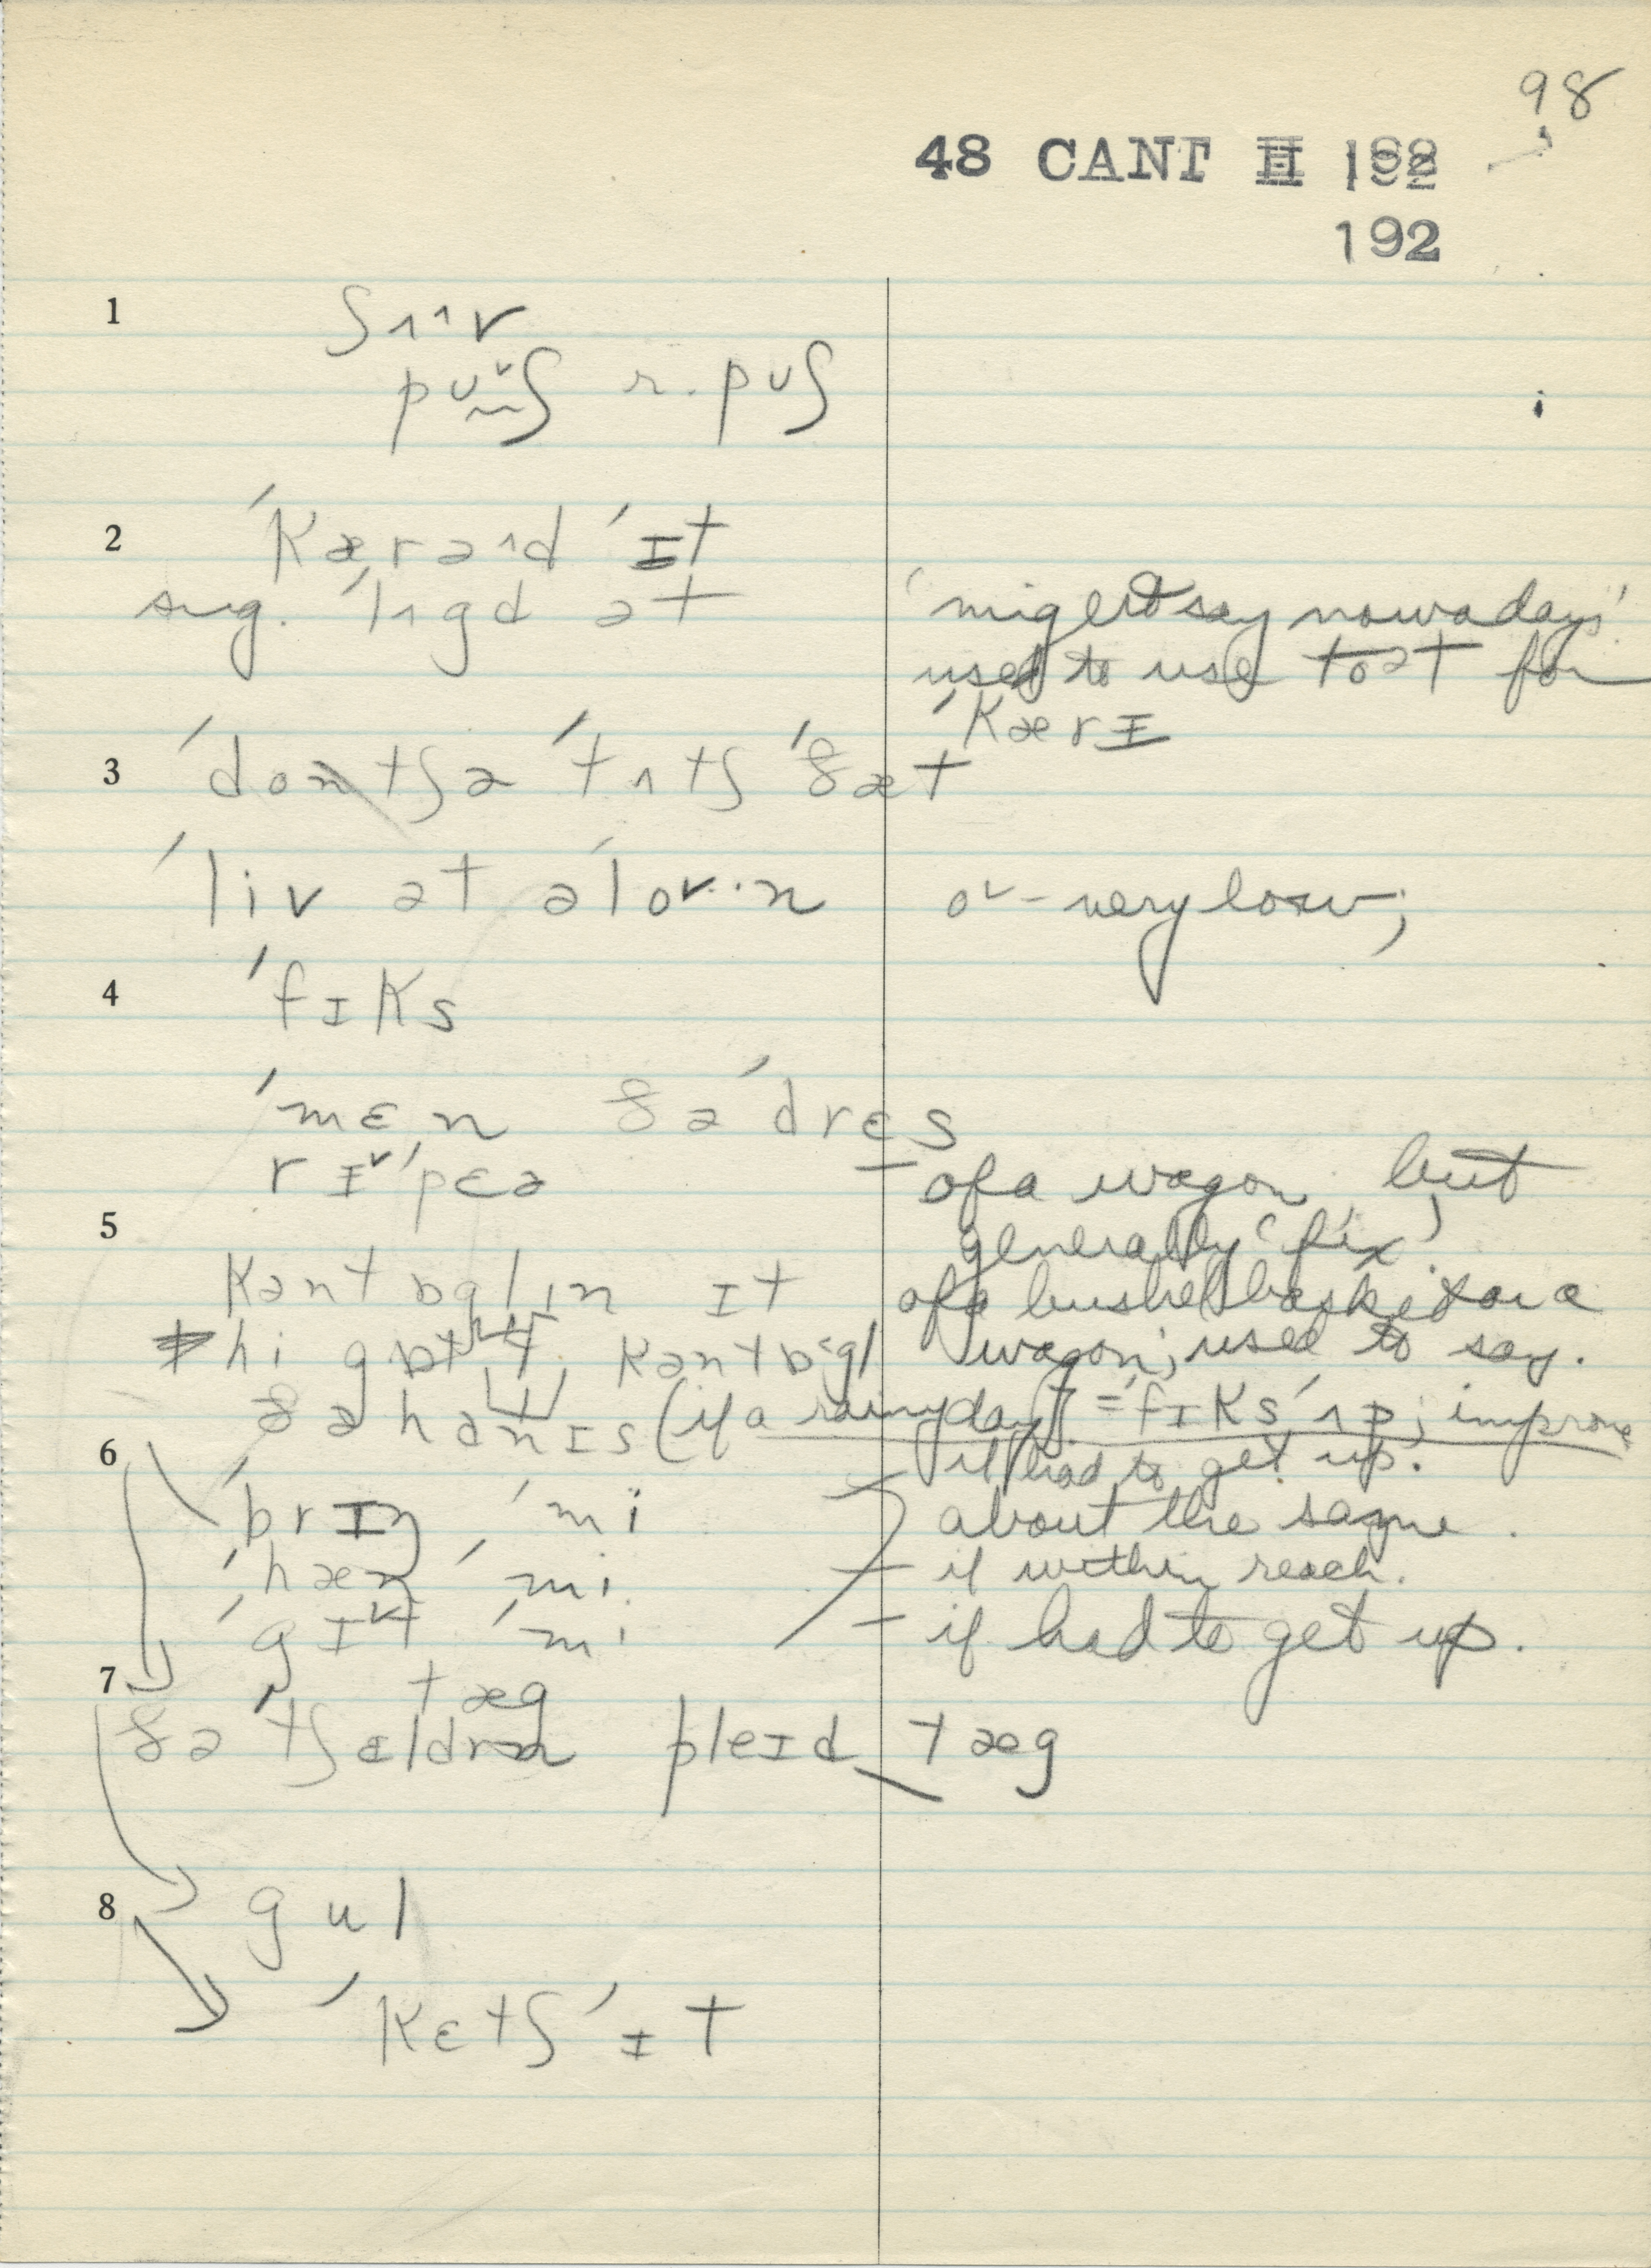 98
48 CANT II 192
192
1 ʃʌ^v
pʊˇʃ r. pʊʃ
2 ˈkærəˆd ˈɪt
sug. ˈlʌgd ət ‘might say nowadays’
used to use toət for
ˈkærɪ
3 ˈdontʃə ˈtʌtʃ ˈðæt
ˈliv ət əˈloˇ·n oˇ - very low;
4 ˈfɪks
ˈmɛn ðə ˈdrɛs
rɪˇˈpɛə - of a wagon, but
generally ‘fix’.
5
kantɒglin ɪt of a bushel basket or a
hi kantɒgl wagon; used to say.
ðə hanɪs (if a rainy day) = ˈfɪksˈʌp; improve
6 if had to get up.
ˈbrɪŋ ˈmi about the same.
ˈhæn ˈmi - if within reach.
ˈgɪˇt ˈmi - if had to get up.
7 tæg
ðə ˈtʃɛldrn pleɪd tæg
8 gul
ˈkɛtʃ ˈɪt